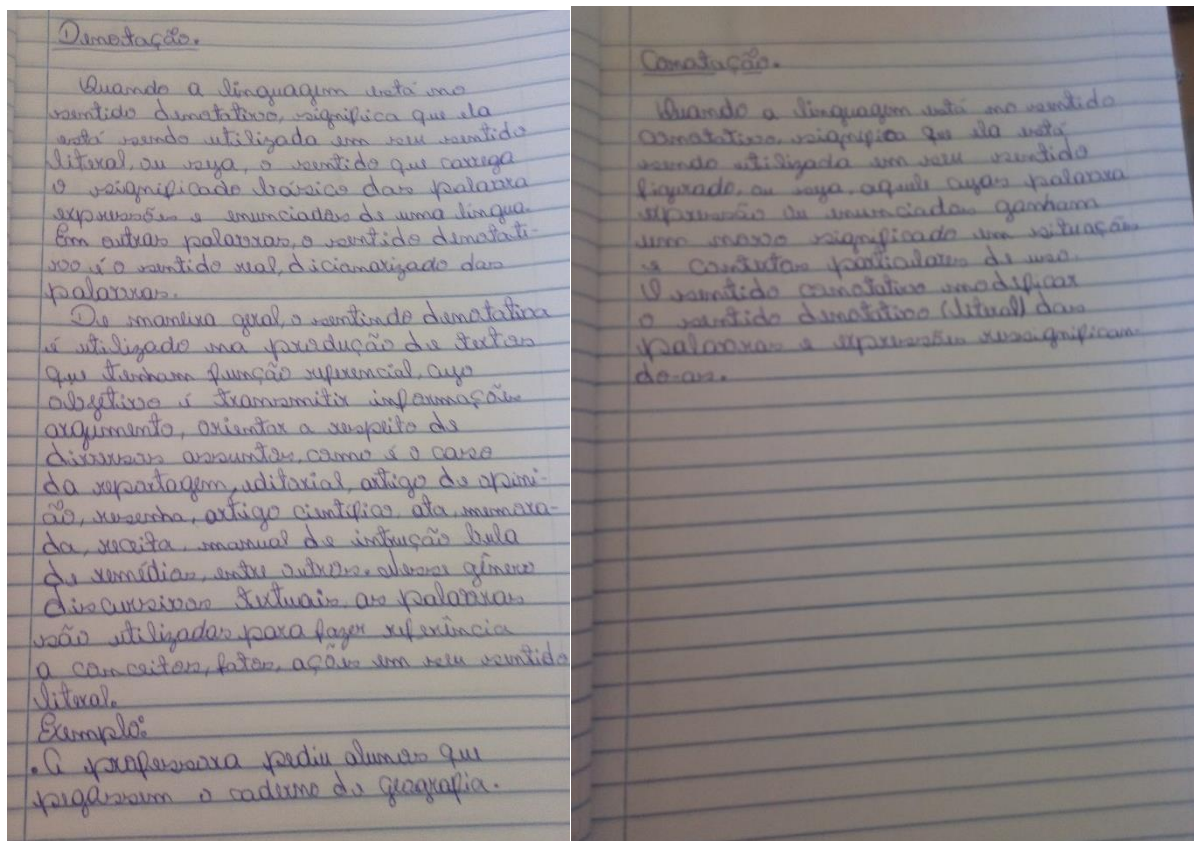 Denotação.
Quando a linguagem está no
sentido denotativo, significa que ela
está sendo utilizada em seu sentido
literal, ou seja, o sentido que carrega
o significado básico das palavra
expressões e enunciados de uma língua.
Em outras palavras, o sentido denotati-
vo é o sentido real, dicionarizado das
palavras.
De maneira geral, o sentindo denotativa
é utilizado na produção de textos
que tenham função referencial, cujo
objetivo é transmitir informações
argumento, orientar a respeito de
diversos assuntos, como é o caso
da reportagem, editorial, artigo de opini-
ão, resenha, artigo científico, ata, memora-
da, receita, manual de intrução bula
de remédios, entre outros. gênero
discursivos textuais, as palavras
são utilizadas para fazer referência
a conceitos, fatos, ações em seu sentido
literal.
Exemplo:
. A professora pediu alunos que
pegassem o caderno de geografia.
Conotação.
Quando a linguagem está no sentido
conotativo, significa que ela está
sendo utilizada em seu sentido
figurado, ou seja, aquele cujas palavra
expressão ou enunciados ganham
um novo significado em situações
e contextos particulares de uso.
O sentido conotativo modificar
o sentido denotativo (literal) das
palavras e expressões ressignifican-
do-as.